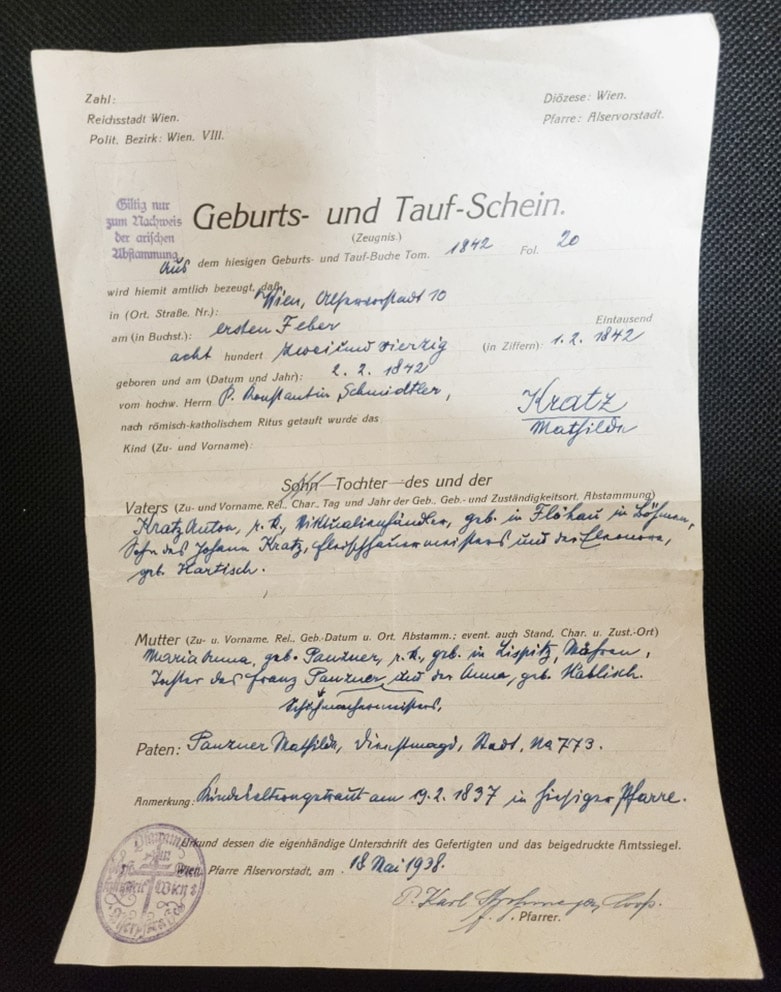 Zahl:
Reichsstadt Wien.
Polit. Bezirk: Wien, VIII.
Diözese: Wien.
Pfarre: Alservorstadt.
Giltig nur
zum Nachweis
der arischen
Abstammung
Geburts- und Tauf-Schein.
(Zeugnis.)
Aus dem hiesigen Geburts- und Tauf-Buche Tom. 1842 Fol. 20
wird hiemit amtlich bezeugt, daß
in (Ort, Straße, Nr.): Wien, Alservorstadt 10
am (in Buchst.): ersten Feber Eintausend
acht hundert zweiundvierzig (in Ziffern): 1. 2. 1842
geboren und am (Datum und Jahr): 2. 2. 1842
vom hochw. Herrn P. Konstantin Schmidtler,
nach römisch-katholischem Ritus getauft wurde das
Kind (Zu- und Vorname): Kratz
Mathilde
Sohn Tochter des und der
Vaters (Zu- und Vorname, Rel., Char., Tag und Jahr der Geb., Geb.- und Zuständigkeitsort, Abstammung)
Kratz Anton, r. k., Viktualienhändler, geb. in Flöhau in Böhmen,
Sohn des Johann Kratz, Fleischhauermeisters und der Eleonora,
geb. Hartisch.
Mutter (Zu- u. Vorname, Rel., Geb.-Datum u. Ort, Abstamm.; event. auch Stand, Char. u. Zust.-Ort)
Maria Anna, geb. Panzner, r. k., geb. in Lispitz, Mähren,
Tochter des Franz Panzner und der Anna, geb. Kablisch.
Schuhmachermeisters,
Paten: Panzner Mathilde, Dienstmagd, Stadt, No 773.
Anmerkung: Kindeseltern getraut am 19. 2. 1837 in hiesiger Pfarre.
Urkund dessen die eigenhändige Unterschrift des Gefertigten und das beigedruckte Amtssiegel.
Wien, Pfarre Alservorstadt, am 18. Mai 1938.
P. Karl
Pfarrer.